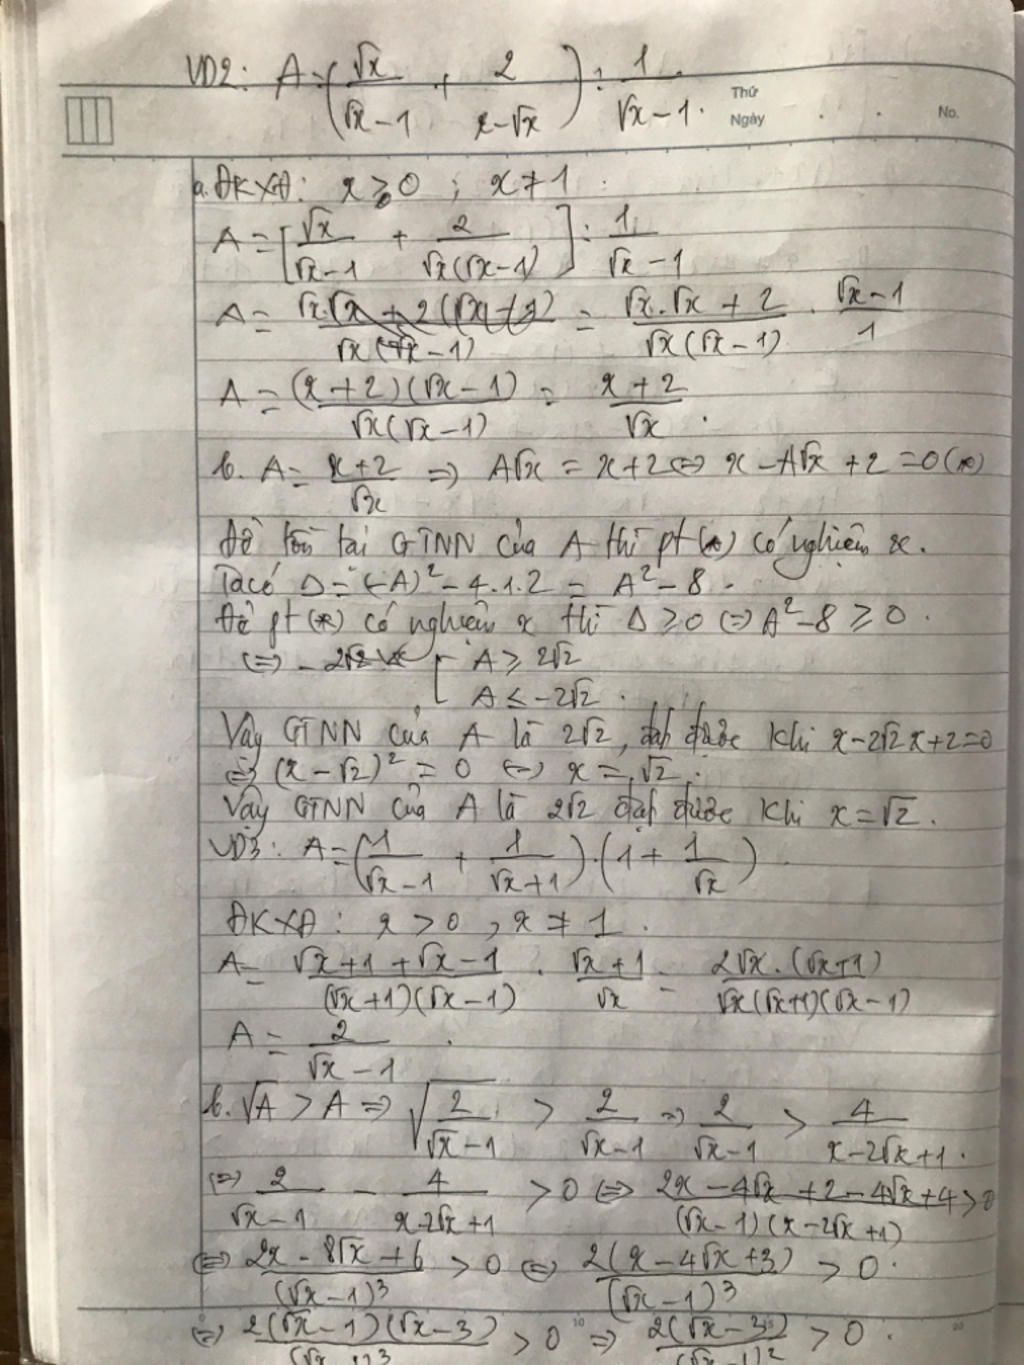 VD2: A = (√x/(√x-1) + 2/(x-√x)) : 1/(√x-1).
Thứ
Ngày . . No.
a. ĐKXĐ: x ≥ 0 ; x ≠ 1.
A = [√x/(√x-1) + 2/(√x(√x-1))] : 1/(√x-1)
A = = (√x.√x + 2)/(√x(√x-1)) . (√x-1)/1
A = (x+2)(√x-1)/(√x(√x-1)) = (x+2)/√x .
b. A = (x+2)/√x ⇒ A√x = x+2 ⇔ x - A√x + 2 = 0 (*)
Để tồn tại GTNN của A thì pt (*) có nghiệm x.
Ta có Δ = (-A)² - 4.1.2 = A² - 8.
Để pt (*) có nghiệm x thì Δ ≥ 0 ⇔ A² - 8 ≥ 0.
⇔ [ A ≥ 2√2
A ≤ -2√2 .
Vậy GTNN của A là 2√2, đạt được khi x-2√2x+2=0
⇔ (x-√2)² = 0 ⇔ x = √2.
Vậy GTNN của A là 2√2 đạt được khi x = √2.
VD3: A = (1/(√x-1) + 1/(√x+1)).(1 + 1/√x)
ĐKXĐ: x > 0, x ≠ 1.
A = (√x+1+√x-1)/((√x+1)(√x-1)) . (√x+1)/√x = 2√x.(√x+1)/(√x(√x+1)(√x-1))
A = 2/(√x-1) .
b. √A > A ⇒ √(2/(√x-1)) > 2/(√x-1) ⇒ 2/(√x-1) > 4/(x-2√x+1).
⇔ 2/(√x-1) - 4/(x-2√x+1) > 0 ⇔ (2x-4√x+2-4√x+4)/((√x-1)(x-2√x+1)) > 0
⇔ (2x-8√x+6)/(√x-1)³ > 0 ⇔ 2(x-4√x+3)/(√x-1)³ > 0.
⇔ 2(√x-1)(√x-3)/(√x-1)³ > 0 ⇒ 2(√x-3)/(√x-1)² > 0.